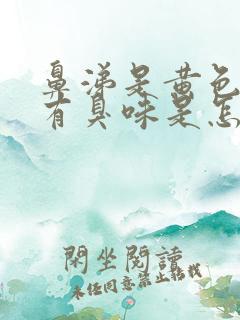 鼻涕是黄色
有臭味是怎
閑坐閱讀
未经同意禁止转载